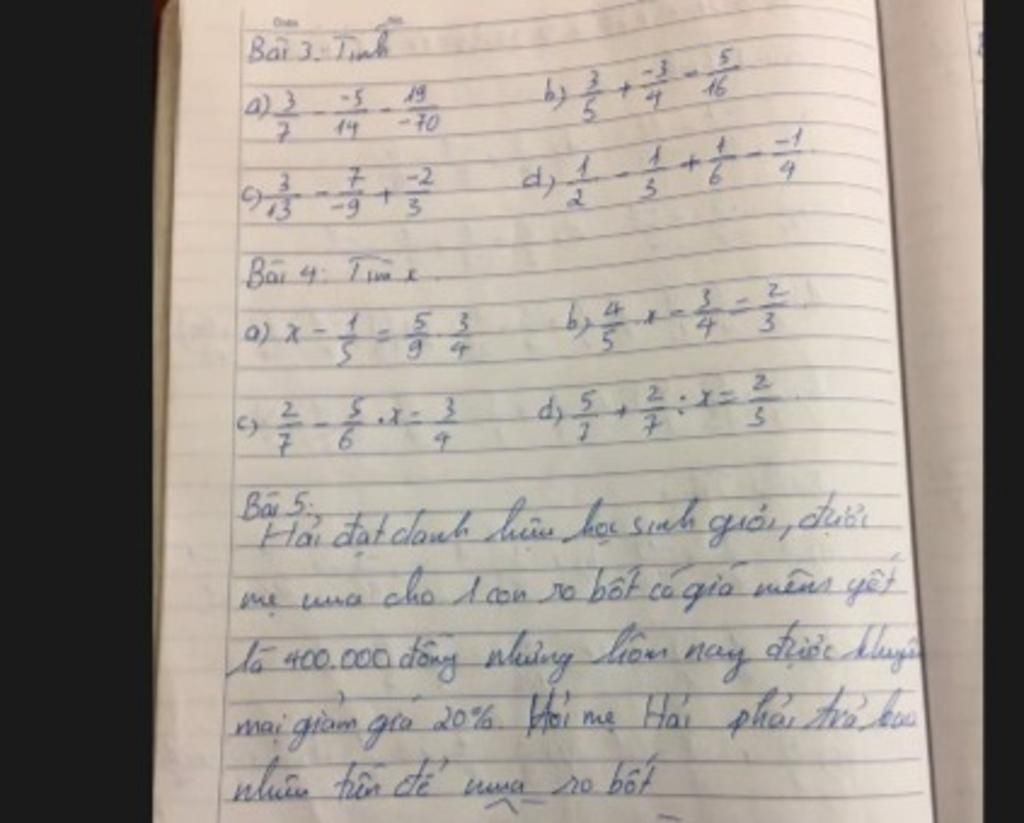 Bài 3. Tính
a) 3/7 - -5/14 - 19/-70 b) 3/5 + -3/4 - 5/16
c) 3/13 - 7/-9 + -2/3 d) 1/2 - 1/3 + 1/6 - -1/4
Bài 4: Tìm x
a) x - 1/5 = 5/9 . 3/4 b) 4/5 . x - 3/4 = 2/3
c) 2/7 - 5/6 . x = 3/4 d) 5/7 + 2/7 : x = 2/3
Bài 5:
Hải đạt danh hiệu học sinh giỏi, được
mẹ mua cho 1 con rô bốt có giá niêm yết
là 400.000 đồng nhưng hôm nay được khuyến
mại giảm giá 20%. Hỏi mẹ Hải phải trả bao
nhiêu tiền để mua rô bốt